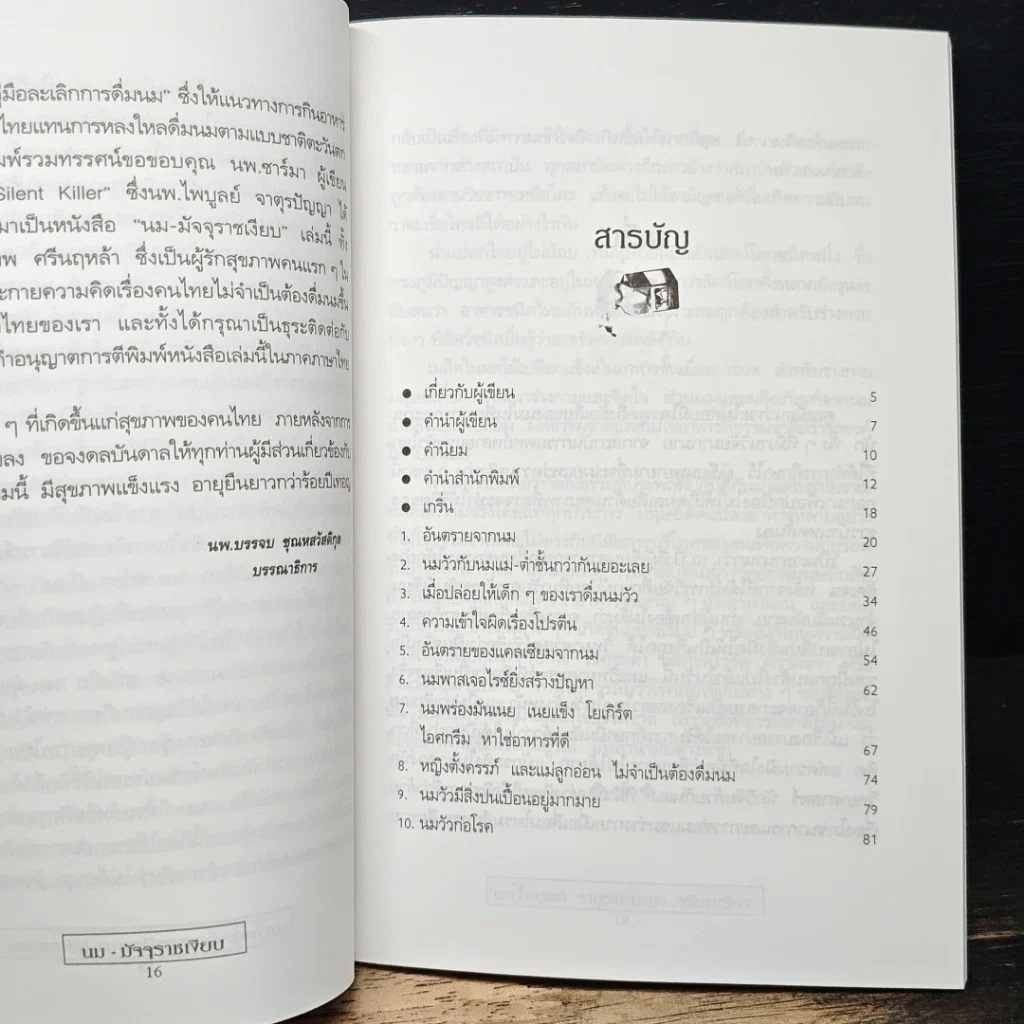 มือละเลิกการดื่มนม” ซึ่งให้แนวทางการกินอาหาร
ไทยแทนการหลงใหลดื่มนมตามแบบชาติตะวันตก
พิมพ์รวมทรรศน์ขอขอบคุณ นพ.ชาร์มา ผู้เขียน
Silent Killer” ซึ่งนพ.ไพบูลย์ จาตุรปัญญา ได้
มาเป็นหนังสือ “นม-มัจจุราชเงียบ” เล่มนี้ ทั้ง
ศรีนฤหล้า ซึ่งเป็นผู้รักสุขภาพคนแรก ๆ ใน
ะกายความคิดเรื่องคนไทยไม่จำเป็นต้องดื่มนมขึ้น
ไทยของเรา และทั้งได้กรุณาเป็นธุระติดต่อกับ
คำอนุญาตการตีพิมพ์หนังสือเล่มนี้ในภาคภาษาไทย
ๆ ที่เกิดขึ้นแก่สุขภาพของคนไทย ภายหลังจากการ
ลง ขอจงดลบันดาลให้ทุกท่านผู้มีส่วนเกี่ยวข้องกับ
มนี้ มีสุขภาพแข็งแรง อายุยืนยาวกว่าร้อยปีเทอญ
นพ.บรรจบ ชุณหสวัสดิกุล
บรรณาธิการ
นม - มัจจุราชเงียบ
16
สารบัญ
● เกี่ยวกับผู้เขียน 5
● คำนำผู้เขียน 7
● คำนิยม 10
● คำนำสำนักพิมพ์ 12
● เกริ่น 18
1. อันตรายจากนม 20
2. นมวัวกับนมแม่-ต่ำชั้นกว่ากันเยอะเลย 27
3. เมื่อปล่อยให้เด็ก ๆ ของเราดื่มนมวัว 34
4. ความเข้าใจผิดเรื่องโปรตีน 46
5. อันตรายของแคลเซียมจากนม 54
6. นมพาสเจอไรซ์ยิ่งสร้างปัญหา 62
7. นมพร่องมันเนย เนยแข็ง โยเกิร์ต
ไอศกรีม หาใช่อาหารที่ดี 67
8. หญิงตั้งครรภ์ และแม่ลูกอ่อน ไม่จำเป็นต้องดื่มนม 74
9. นมวัวมีสิ่งปนเปื้อนอยู่มากมาย 79
10. นมวัวก่อโรค 81